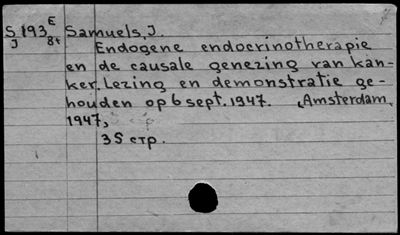 S193 E Samuels, J.
J 8t
Endogene endocrinotherapie
en de causale genezing van kan-
ker. Lezing en demonstratie ge-
houden op 6 sept. 1947. Amsterdam,
1947,
35 стр.